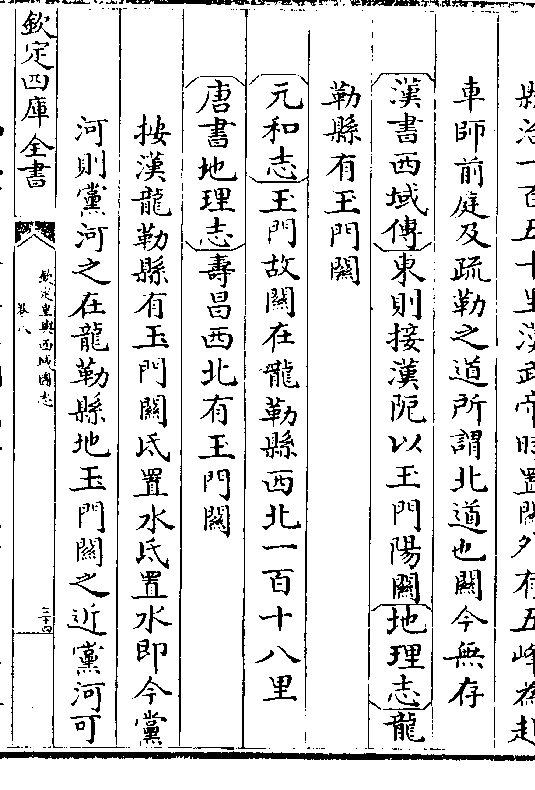 縣治一百五十里漢武帝時置關外有五峰為赴
車師前庭及疏勒之道所謂北道也關今無存
漢書西域傳東則接漢阸以玉門陽關地理志龍
勒縣有玉門關
元和志玉門故關在龍勒縣西北一百十八里
唐書地理志壽昌西北有玉門關
按漢龍勒縣有玉門關氐置水氐置水即今黨
河則黨河之在龍勒縣地玉門關之近黨河可
欽定四庫全書
欽定皇輿西域圖志
卷八
三十四